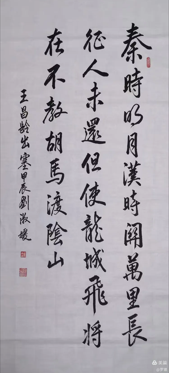 秦時明月漢時關萬里長
征人未還但使龍城飛將
在不教胡馬渡陰山
王昌齡出塞甲辰劉淑媛